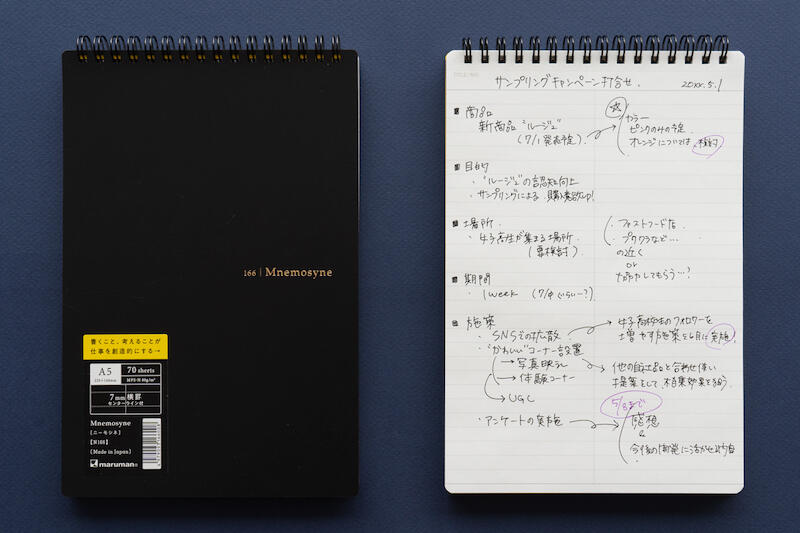 166 | Mnemosyne
書くこと、考えることが
仕事を創造的にする→
A5
210×148mm
70 sheets
MPS-N 80g/m²
7mm横罫
センターライン付
Mnemosyne
[ニーモシネ]
【N166】
(Made in Japan)
maruman®
サンプリングキャンペーン打合せ. 20xx.5.1
商品
新商品 "ルージュ"
(7/1発表予定)
☆
カラー
ピンクのみの予定.
オレンジについては 検討
目的
・"ルージュ"の認知を向上
・サンプリングによる 購入意欲UP!
場所
・女子高生が集まる場所.
(要検討)
・ファストフード店
・プリクラなど…
の近く
or
してもらう…?
期間
・1week (7/中ぐらい〜?)
施策
・SNSでの拡散
・"かわいい"コーナー設置
→写真映え
→体験コーナー
→UGC
・アンケートの実施
女子高校生のフォロワーを
増やす施策を6月に実施!
他の自社品と合わせ使い
提案をして、相乗効果をねらう
5/8まで
感想
&
今後の開発に活かせる内容